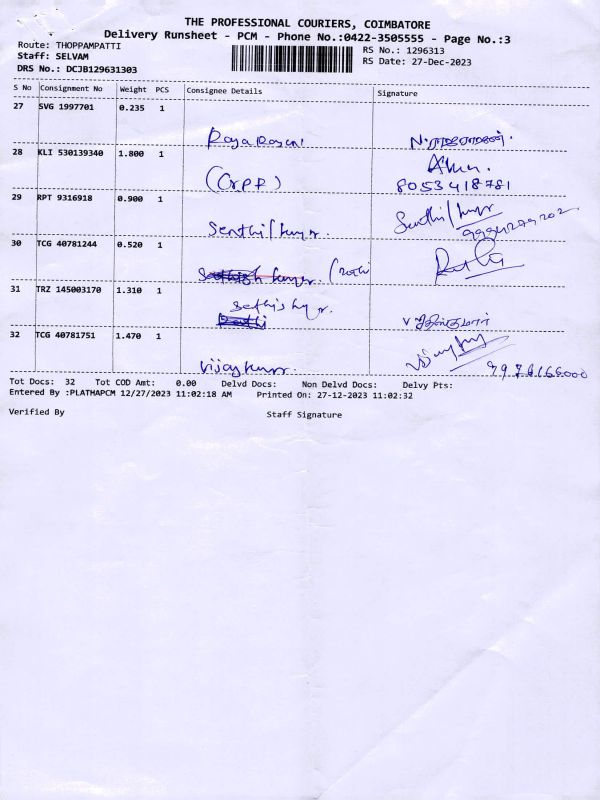 THE PROFESSIONAL COURIERS, COIMBATORE
Delivery Runsheet - PCM - Phone No.:0422-3505555 - Page No.:3
Route: THOPPAMPATTI RS No.: 1296313
Staff: SELVAM RS Date: 27-Dec-2023
DRS No.: DCJB129631303
S No Consignment No Weight PCS Consignee Details Signature
27 SVG 1997701 0.235 1
28 KLI 530139340 1.800 1
(CRPF)
8053418781
29 RPT 9316918 0.900 1
Senthilkumar
30 TCG 40781244 0.520 1
31 TRZ 145003170 1.310 1
32 TCG 40781751 1.470 1
Vijaykumar.
9976166000
Tot Docs: 32 Tot COD Amt: 0.00 Delvd Docs: Non Delvd Docs: Delvy Pts:
Entered By :PLATHAPCM 12/27/2023 11:02:18 AM Printed On: 27-12-2023 11:02:32
Verified By Staff Signature